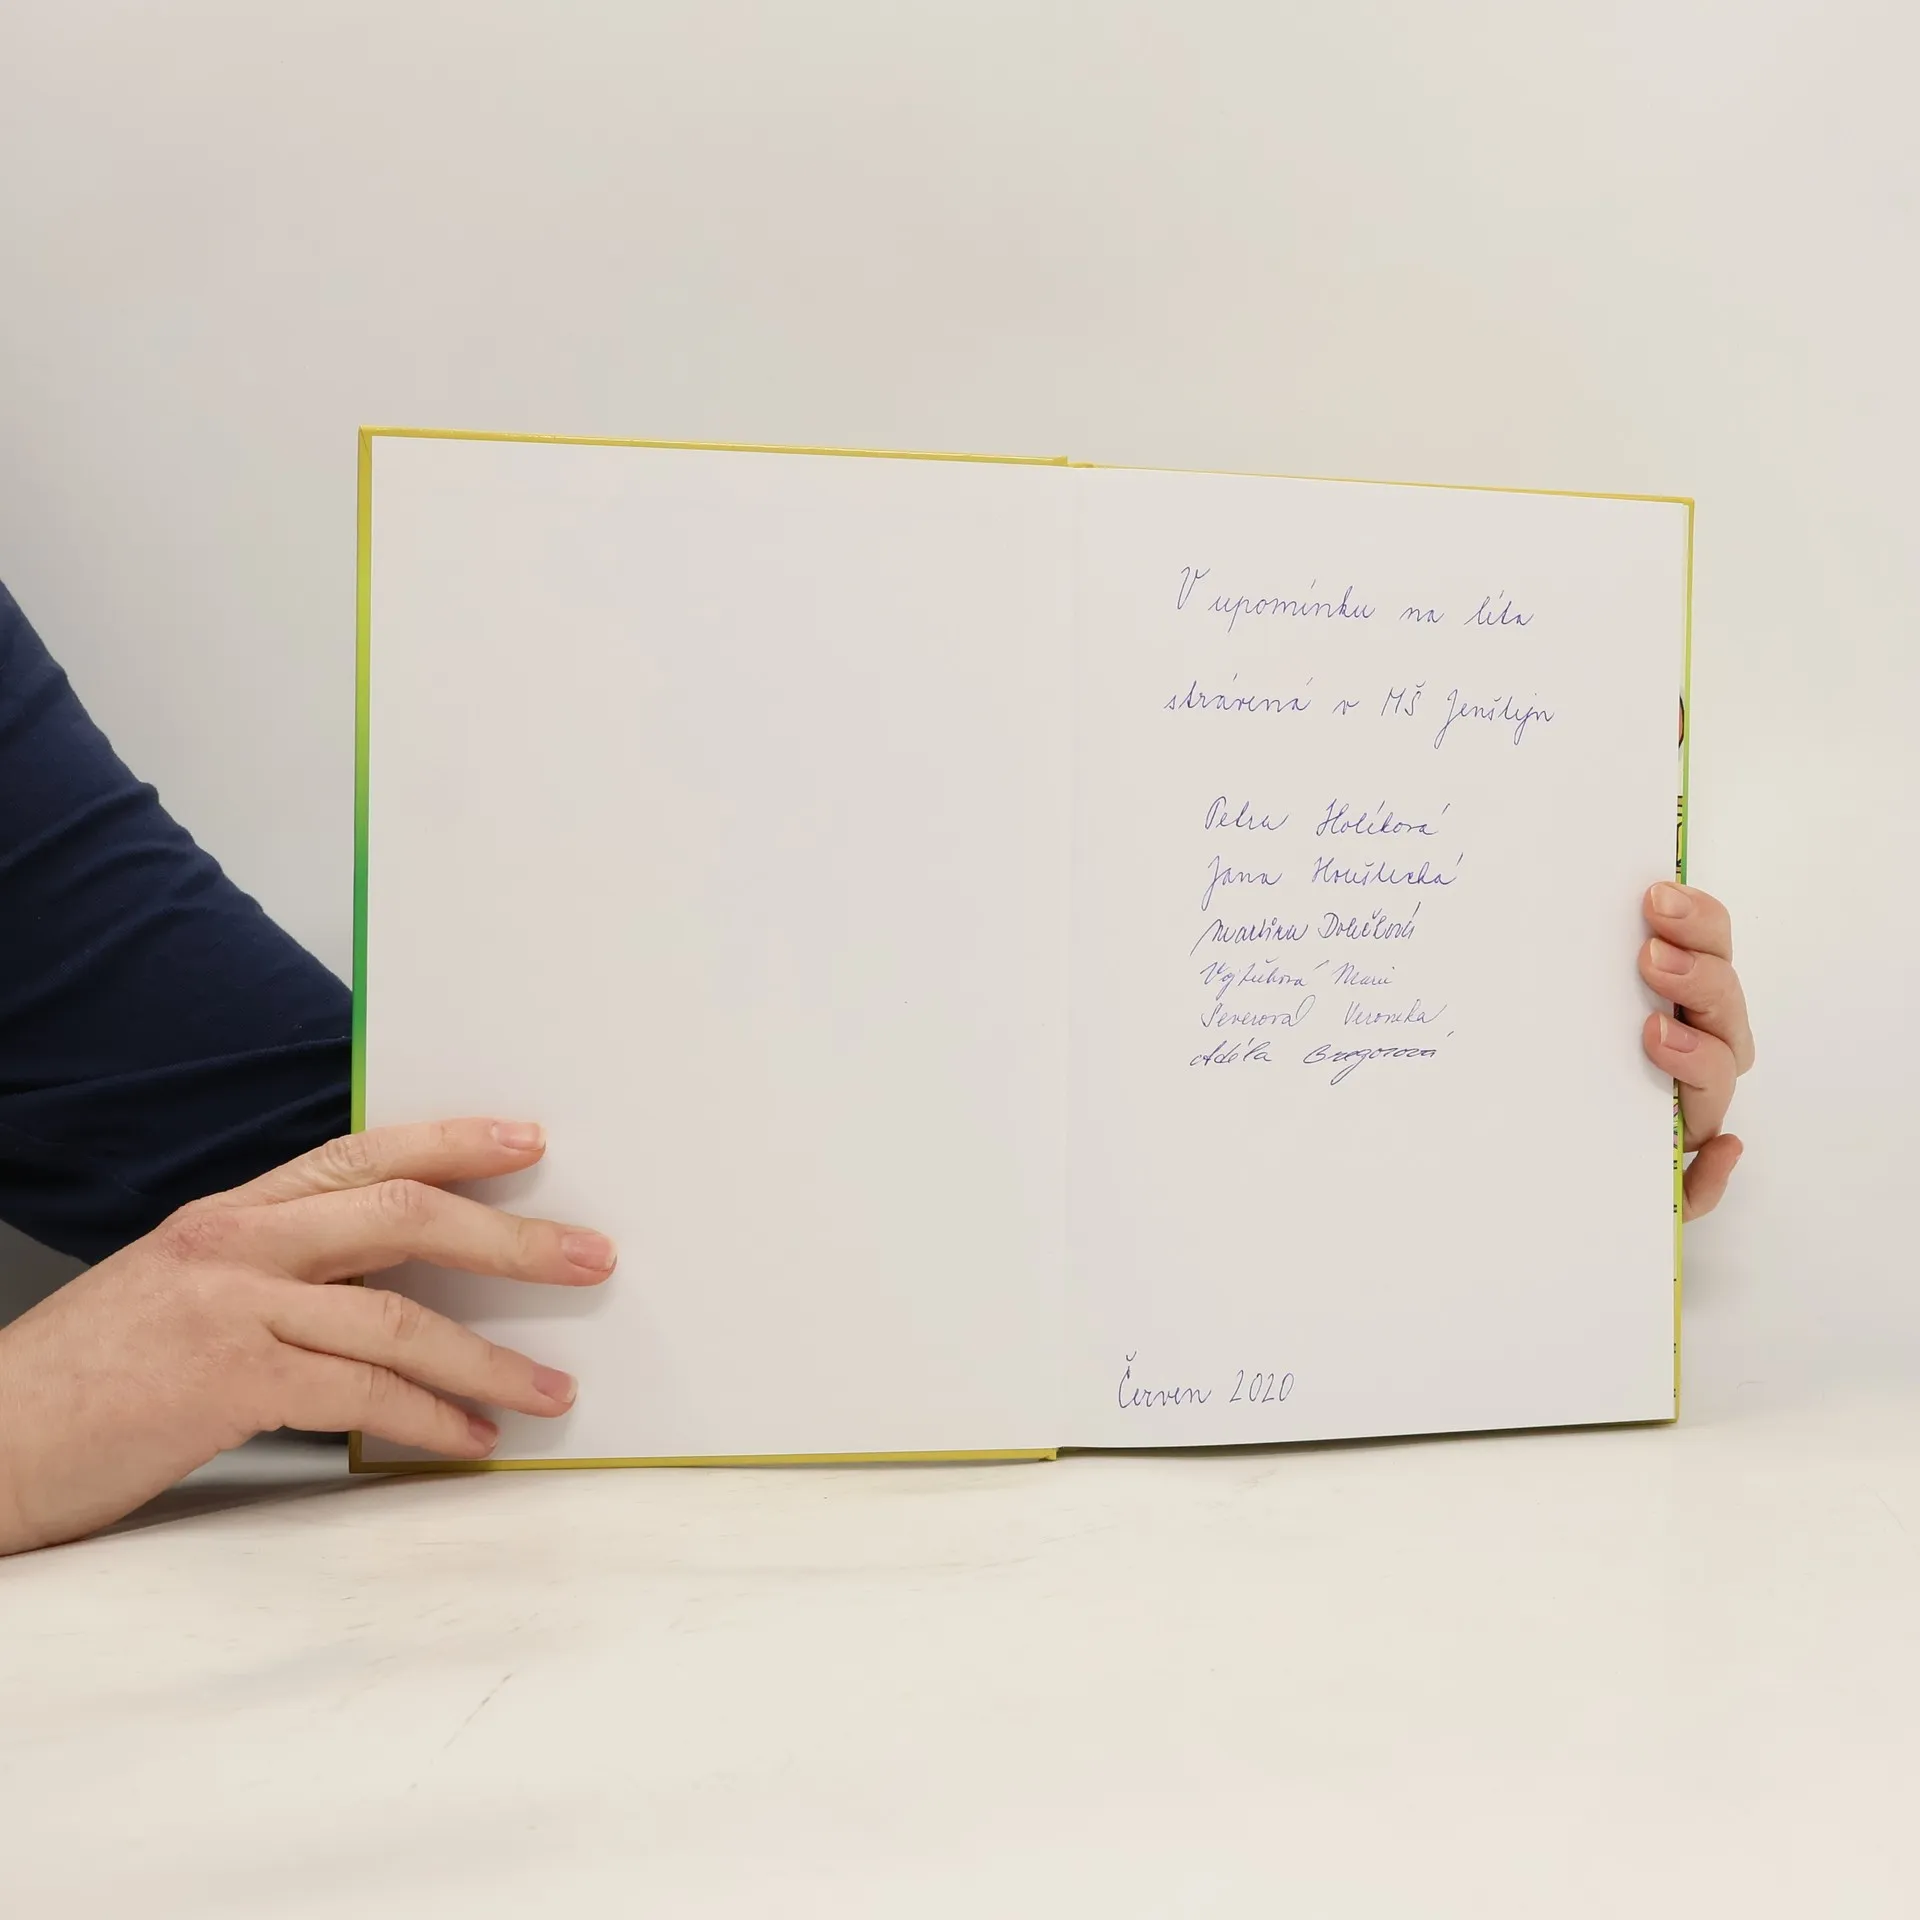 V upomínku na léta
strávená v MŠ Jenštejn
Petra Holíková
Jana Houštecká
Martina
Marie
Severová Veronika
Adéla Gregorová
Červen 2020